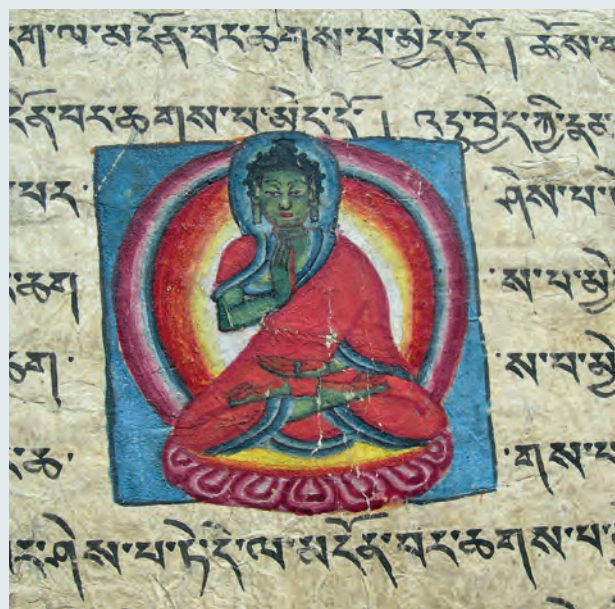 ག་ལ་མངོན་བར་ཆགས་པ་མྱེད་དོ། ཆོས་
ངོན་བར་ཆགས་པ་མྱེད་དོ། འདུ་བྱེད་ཀྱི་རྣ
པར་ ཤེས་པ་
ར་ཆག ས་པ་མྱེ
ཆག་ ས་པ་མྱེ
ར་ཆ་ གས་པ
ར་ཤེས་པ་ཏེ་དེ་ལ་མངོན་བར་ཆགས་པ་